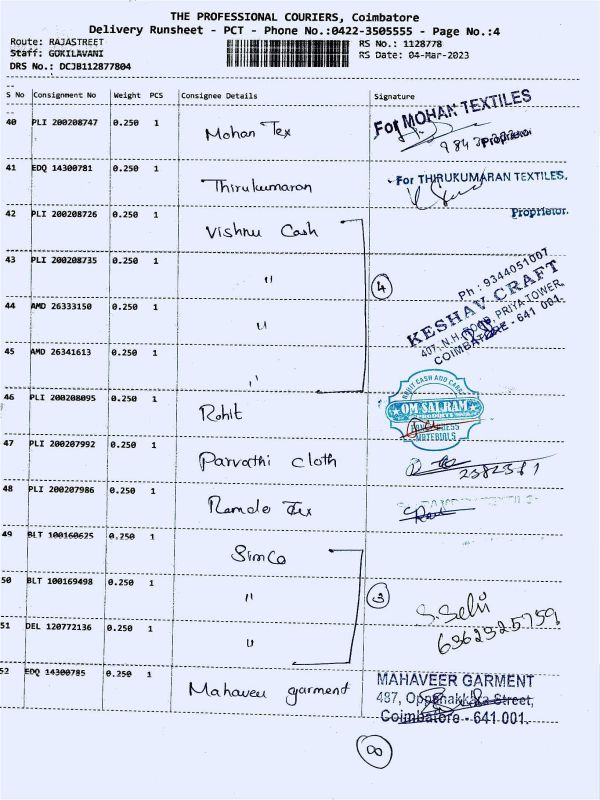 THE PROFESSIONAL COURIERS, Coimbatore
Delivery Runsheet - PCT - Phone No.:0422-3505555 - Page No.:4
Route: RAJASTREET
Staff: GOKILAVANI
DRS No.: DCJB112877804
RS No.: 1128778
RS Date: 04-Mar-2023
S No Consignment No Weight PCS Consignee Details Signature
40 PLI 200208747 0.250 1 Mohan Tex
For MOHAN TEXTILES
Proprietor
41 EDQ 14300781 0.250 1 Thirukumaran
For THIRUKUMARAN TEXTILES,
Proprietor.
42 PLI 200208726 0.250 1 Vishnu Cash
43 PLI 200208735 0.250 1 "
4
Ph : 9344051007
KESHAV CRAFT
407, N.H. ROAD, PRIYA TOWER,
COIMBATORE - 641 001.
44 AMD 26333150 0.250 1 "
45 AMD 26341613 0.250 1 "
46 PLI 200208095 0.250 1 Rohit
ROHIT CASH AND CARRY
OM SAI RAM
PRODUCTS
MATERIALS
47 PLI 200207992 0.250 1 Parvathi cloth
2382381
48 PLI 200207986 0.250 1 Ramdev Tex
49 BLT 100160625 0.250 1 Simco
50 BLT 100169498 0.250 1 "
3
S. Selvi
6362325759
51 DEL 120772136 0.250 1 "
52 EDQ 14300785 0.250 1 Mahaveer garment
MAHAVEER GARMENT
487, Oppanakkara Street,
Coimbatore - 641 001.
8